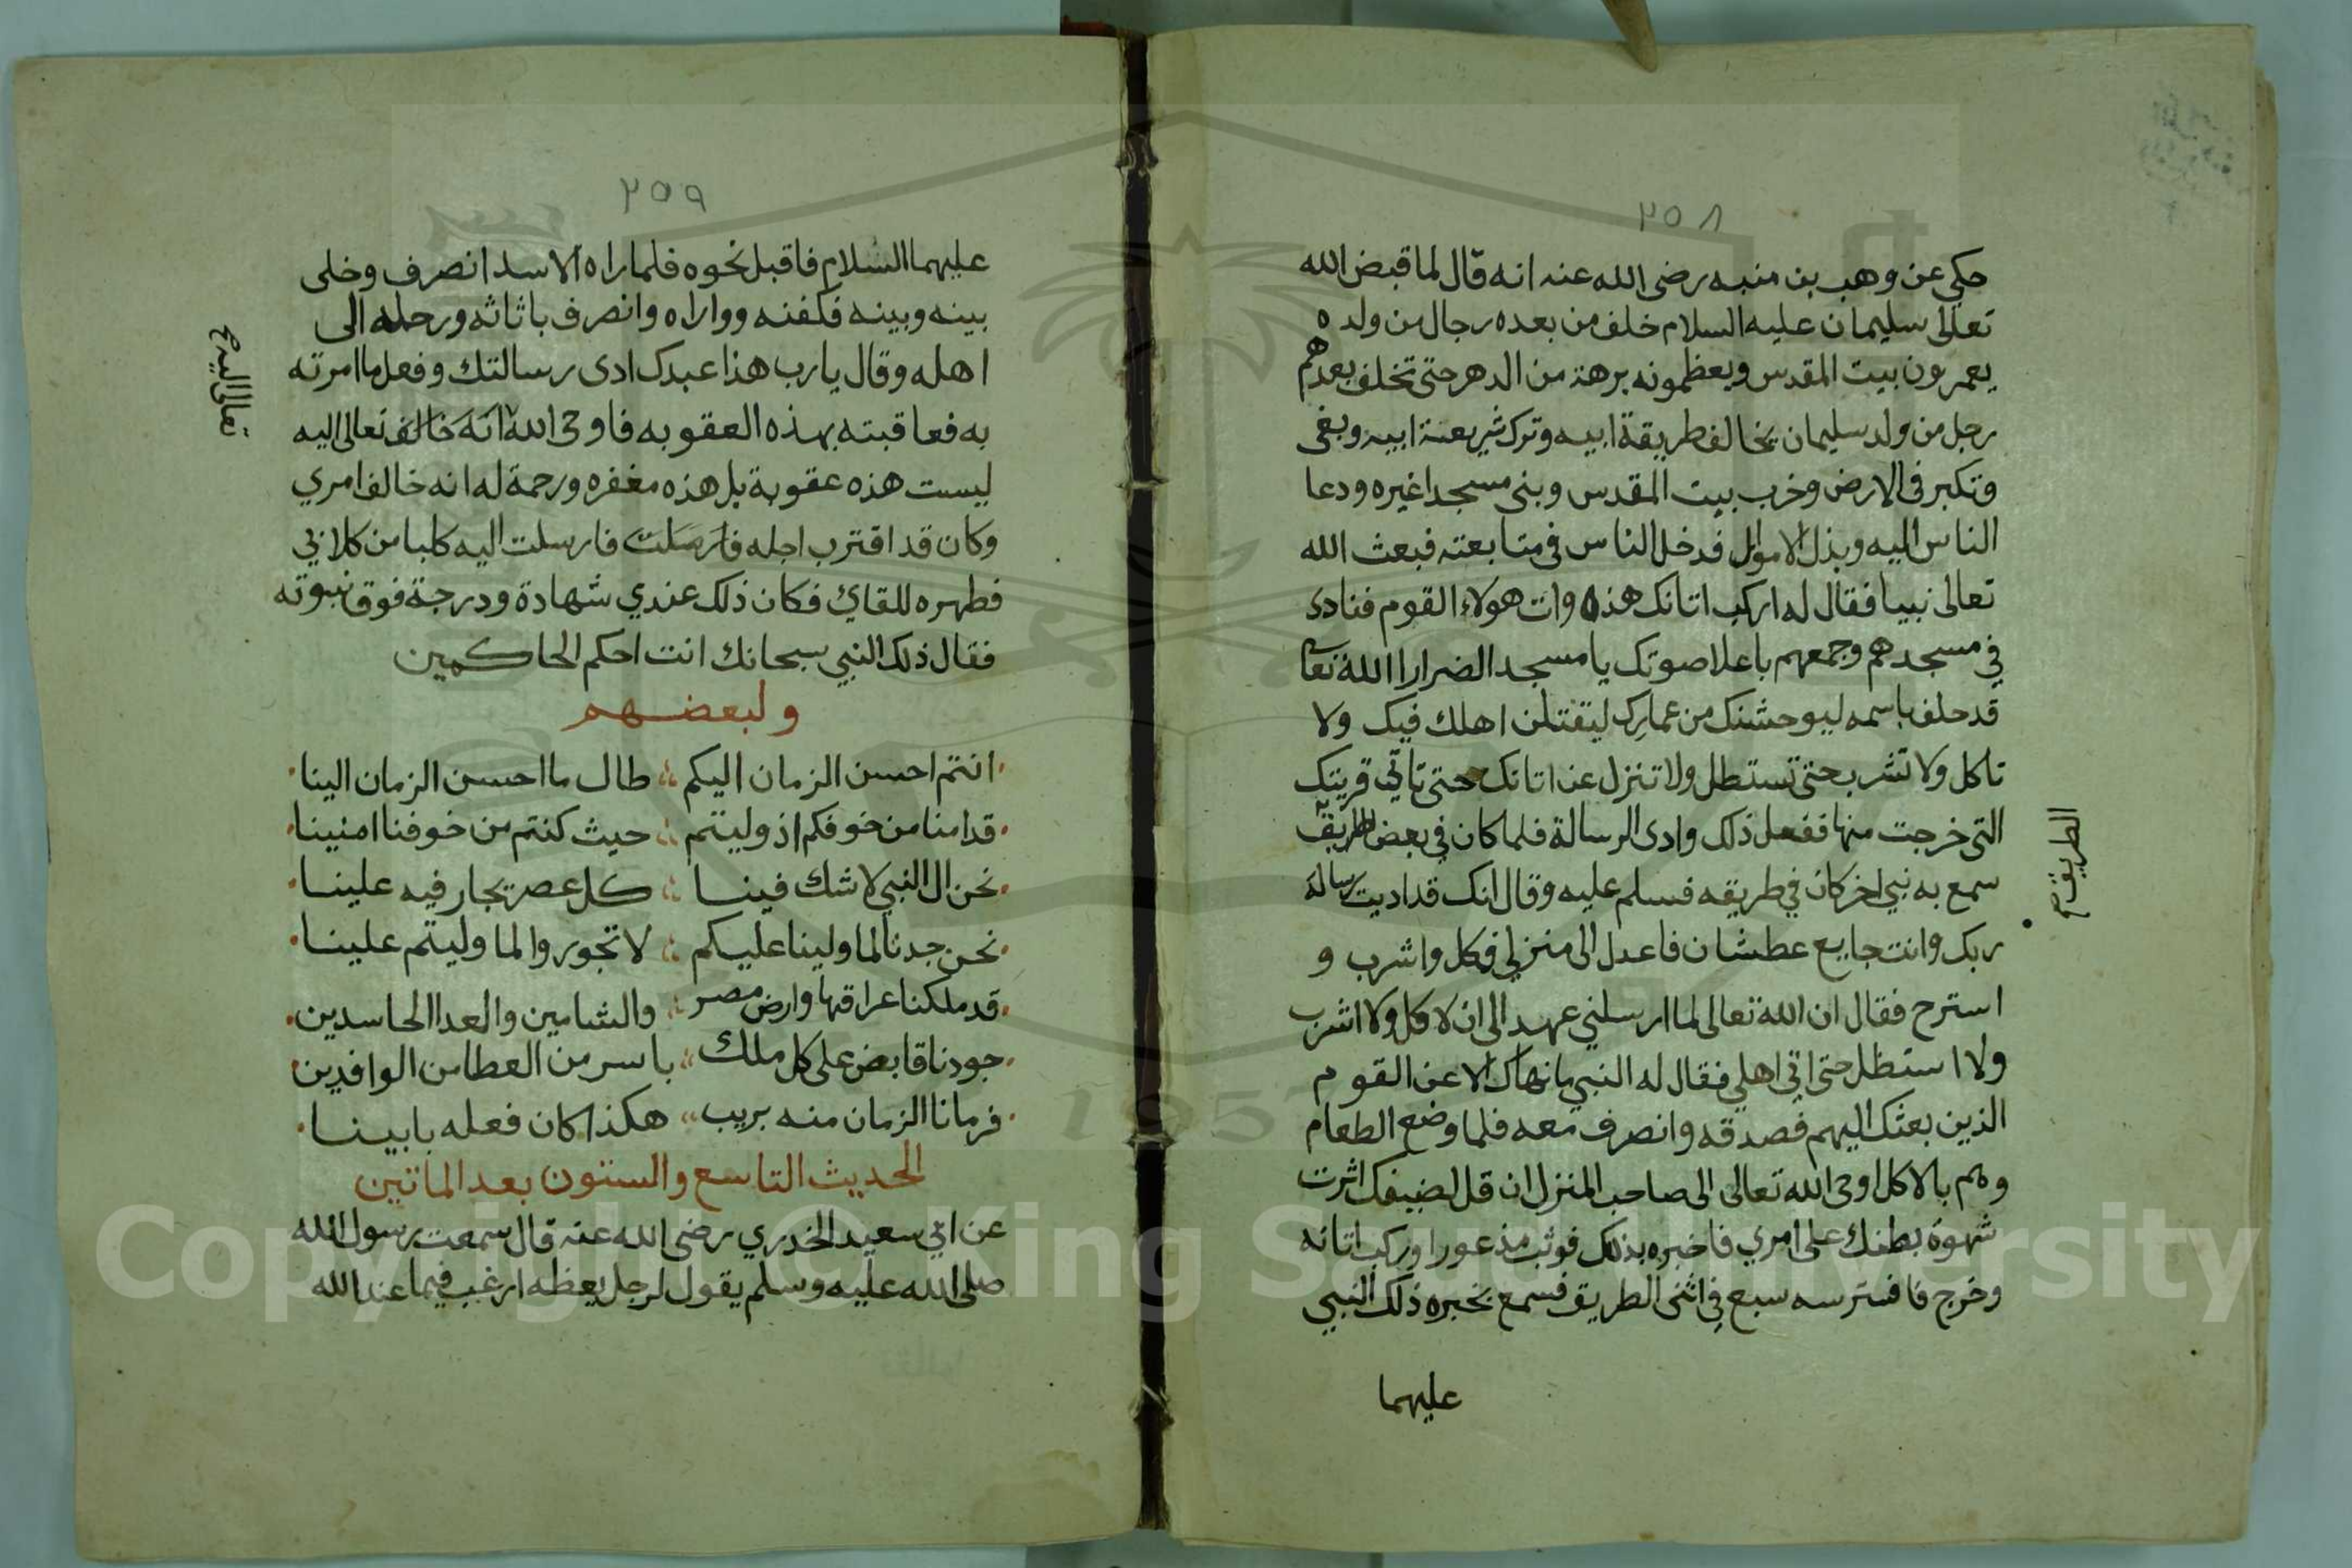 ٢٥٨
حكي عن وهب بن منبه رضى الله عنه انه قال لما قبض الله
تعالى سليمان عليه السلام خلف من بعده رجال من ولده
يعمرون بيت المقدس ويعظمونه برهة من الدهر حتى تخلف بعدهم
رجل من ولد سليمان يخالف طريقة ابيه وترك شريعة ابيه وبغى
وتكبر فى الارض وخرب بيت المقدس وبنى مسجدا غيره ودعا
الناس اليه وبذل الاموال فدخل الناس في متابعته فبعث الله
تعالى نبيا فقال له اركب اتانك هذه وات هولاء القوم فنادى
في مسجدهم وجمعهم باعلا صوتك يا مسجد الضرارا الله تعا
قد حلف باسمه ليوحشنك من عمارك ليقتلن اهلك فيك ولا
تاكل ولا تشرب حتى تستطل ولا تنزل عن اتانك حتى تاتي قريتك
التى خرجت منها ففعل ذلك وادى الرسالة فلما كان في بعض الطريق
الطريق صح
سمع به نبي اخر كان في طريقه فسلم عليه وقال انك قد اديت رسالة
ربك وانت جايع عطشان فاعدل الى منزلي فكل واشرب و
استرح فقال ان الله تعالى لما ارسلني عهد الى ان لا اكل ولا اشرب
ولا استظل حتى اتي اهلي فقال له النبي ما نهاك الا عن القوم
الذين بعثك اليهم فصدقه وانصرف معه فلما وضع الطعام
وهم بالاكل اوحى الله تعالى الى صاحب المنزل ان قل لضيفك اثرت
شهوة بطنك على امري فاخبره بذلك فوثب مذعورا وركب اتانه
وخرج فافترسه سبع في اثنى الطريق فسمع بخبره ذلك النبي
عليهما
٢٥٩
عليهما السلام فاقبل نحوه فلما راه الاسد انصرف وخلى
بينه وبينه فكفنه وواراه وانصرف باتانه ورحله الى
اهله وقال يا رب هذا عبدك ادى رسالتك وفعل ما امرته
به فعاقبته بهذه العقوبه فاوحى الله انه خالف تعالى اليه
تعالى اليه صح
ليست هذه عقوبة بل هذه مغفره ورحمة له انه خالف امري
وكان قد اقترب اجله فارسلت فارسلت اليه كلبا من كلابي
فطهره للقاي فكان ذلك عندي شهادة ودرجة فوق نبوته
فقال ذلك النبي سبحانك انت احكم الحاكمين
ولبعضهم
انتم احسن الزمان اليكم طال ما احسن الزمان الينا
قد امنا من خوفكم اذ وليتم حيث كنتم من خوفنا امنينا
نحن ال النبي لا شك فينا كل عصر يجار فيه علينا
نحن جدنا لما ولينا عليكم لا تجوروا لما وليتم علينا
قد ملكنا عراقها وارض مصر والشامين والعدا الحاسدين
جودنا قابض على كل ملك باسر من العطا من الوافدين
فرمانا الزمان منه بريب هكذا كان فعله بابينا
الحديث التاسع والستون بعد الماتين
عن ابي سعيد الخدري رضى الله عنه قال سمعت رسول الله
صلى الله عليه وسلم يقول لرجل يعظه ارغب فيما عند الله
1957
Copyright © King Saud University